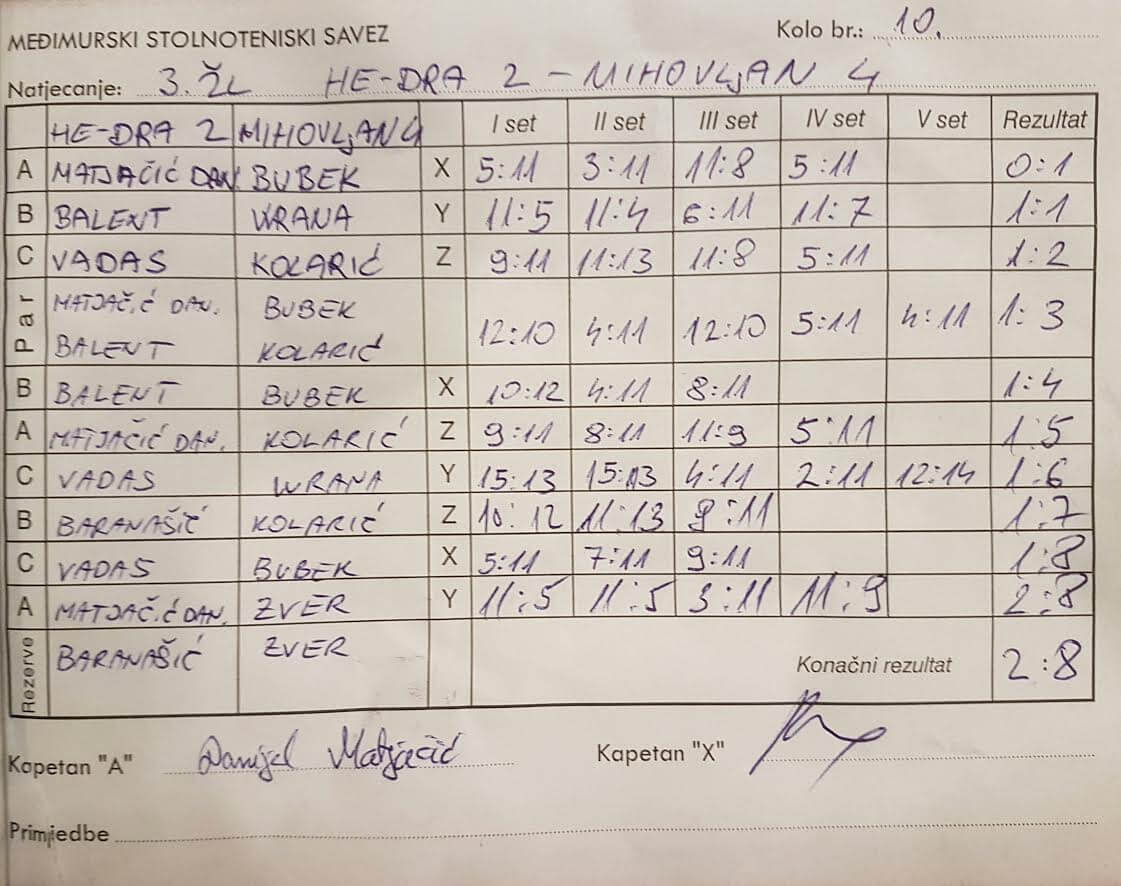 MEĐIMURSKI STOLNOTENISKI SAVEZ Kolo br.: 10.
Natjecanje: 3. ŽL HE-DRA 2 - MIHOVLJAN 4
HE-DRA 2 MIHOVLJAN 4 I set II set III set IV set V set Rezultat
A MATJAČIĆ DAN. BUBEK X 5:11 3:11 11:8 5:11 0:1
B BALENT WRANA Y 11:5 11:4 6:11 11:7 1:1
C VADAS KOLARIĆ Z 9:11 11:13 11:8 5:11 1:2
Par MATJAČIĆ DAN. BUBEK
BALENT KOLARIĆ 12:10 4:11 12:10 5:11 4:11 1:3
B BALENT BUBEK X 10:12 4:11 8:11 1:4
A MATJAČIĆ DAN. KOLARIĆ Z 9:11 8:11 11:9 5:11 1:5
C VADAS WRANA Y 15:13 15:13 4:11 2:11 12:14 1:6
B BARANAŠIĆ KOLARIĆ Z 10:12 11:13 9:11 1:7
C VADAS BUBEK X 5:11 7:11 9:11 1:8
A MATJAČIĆ DAN. ZVER Y 11:5 11:5 3:11 11:9 2:8
Rezerve BARANAŠIĆ ZVER Konačni rezultat 2:8
Kapetan "A" Danijel Matjačić Kapetan "X"
Primjedbe